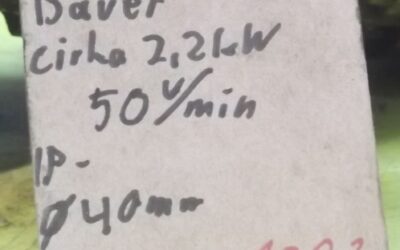 Bauer
cirka 2,2kW
50 U/min
IP-
Ø40mm